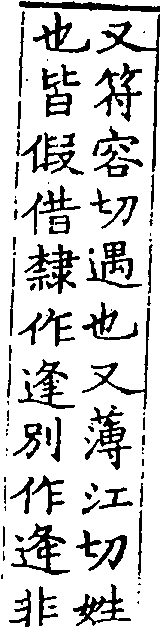 又符容切遇也又薄江切姓
也皆假借隸作逢別作逄非